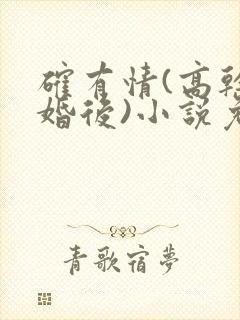 確有情(高幹
婚後)小說免
青歌宿夢